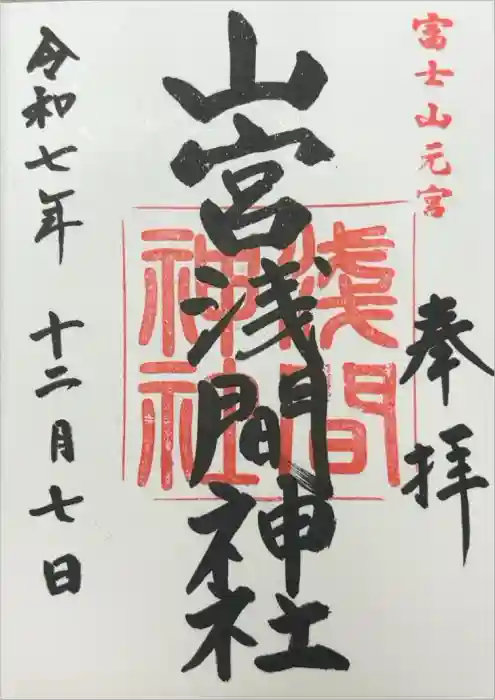 富士山元宮
奉拝
山宮浅間神社
淺間
神社
令和七年 十二月七日